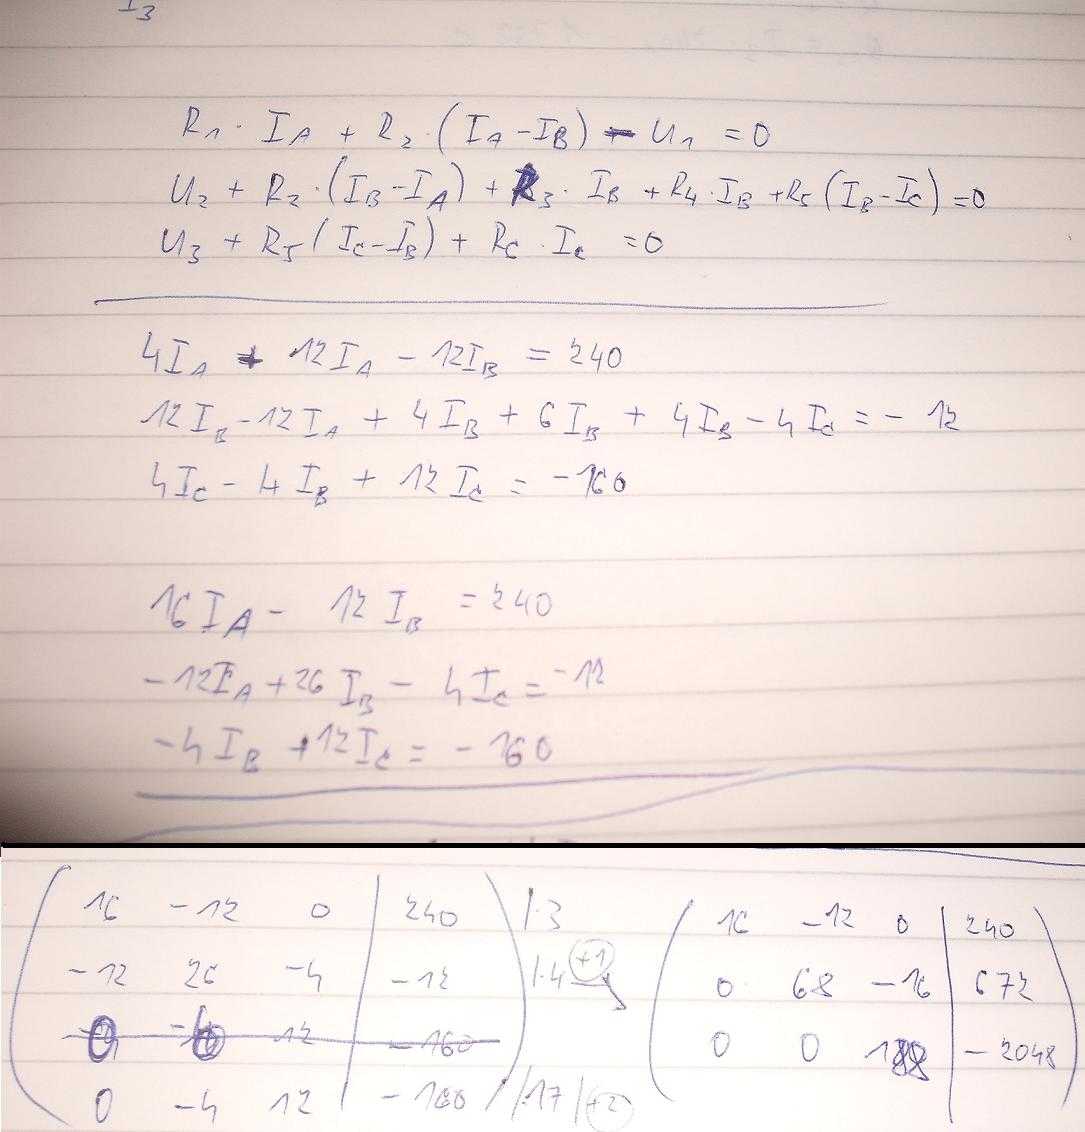 I₃
R₁ · I_A + R₂ · (I_A - I_B) - U₁ = 0
U₂ + R₂ · (I_B - I_A) + R₃ · I_B + R₄ · I_B + R₅ (I_B - I_C) = 0
U₃ + R₅ (I_C - I_B) + R_C · I_C = 0
4I_A + 12I_A - 12I_B = 240
12I_B - 12I_A + 4I_B + 6I_B + 4I_B - 4I_C = - 12
4I_C - 4I_B + 12I_C = -160
16I_A - 12I_B = 240
-12I_A + 26I_B - 4I_C = -12
-4I_B + 12I_C = -160
16 -12 0 | 240 /·3 16 -12 0 | 240
-12 26 -4 | -12 /·4 +1 0 68 -16 | 672
12 | -160 0 0 188 | -2048
0 -4 12 | -160 /·17 | +2